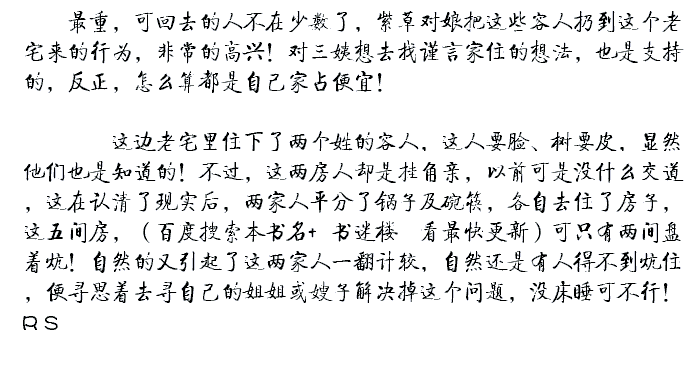 最重，可回去的人不在少数了，紫草对娘把这些客人扔到这个老
宅来的行为，非常的高兴！对三姨想去找谨言家住的想法，也是支持
的，反正，怎么算都是自己家占便宜！
这边老宅里住下了两个姓的客人，这人要脸、树要皮，显然
他们也是知道的！不过，这两房人却是挂角亲，以前可是没什么交道
，这在认清了现实后，两家人平分了锅子及碗筷，各自去住了房子，
这五间房，（百度搜索本书名+ 书迷楼 看最快更新）可只有两间盘
着炕！自然的又引起了这两家人一翻计较，自然还是有人得不到炕住
，便寻思着去寻自己的姐姐或嫂子解决掉这个问题，没床睡可不行！
RS